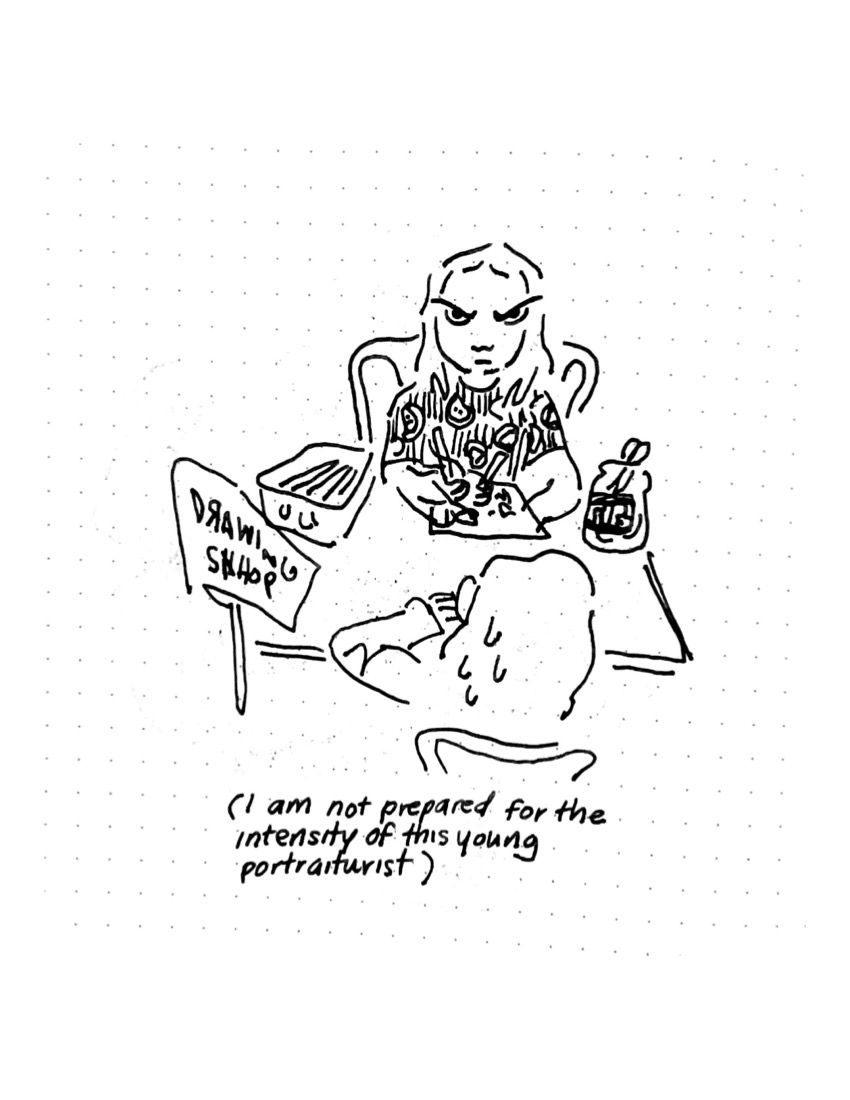 DRAWING
SHHOP
(I am not prepared for the
intensity of this young
portraiturist)